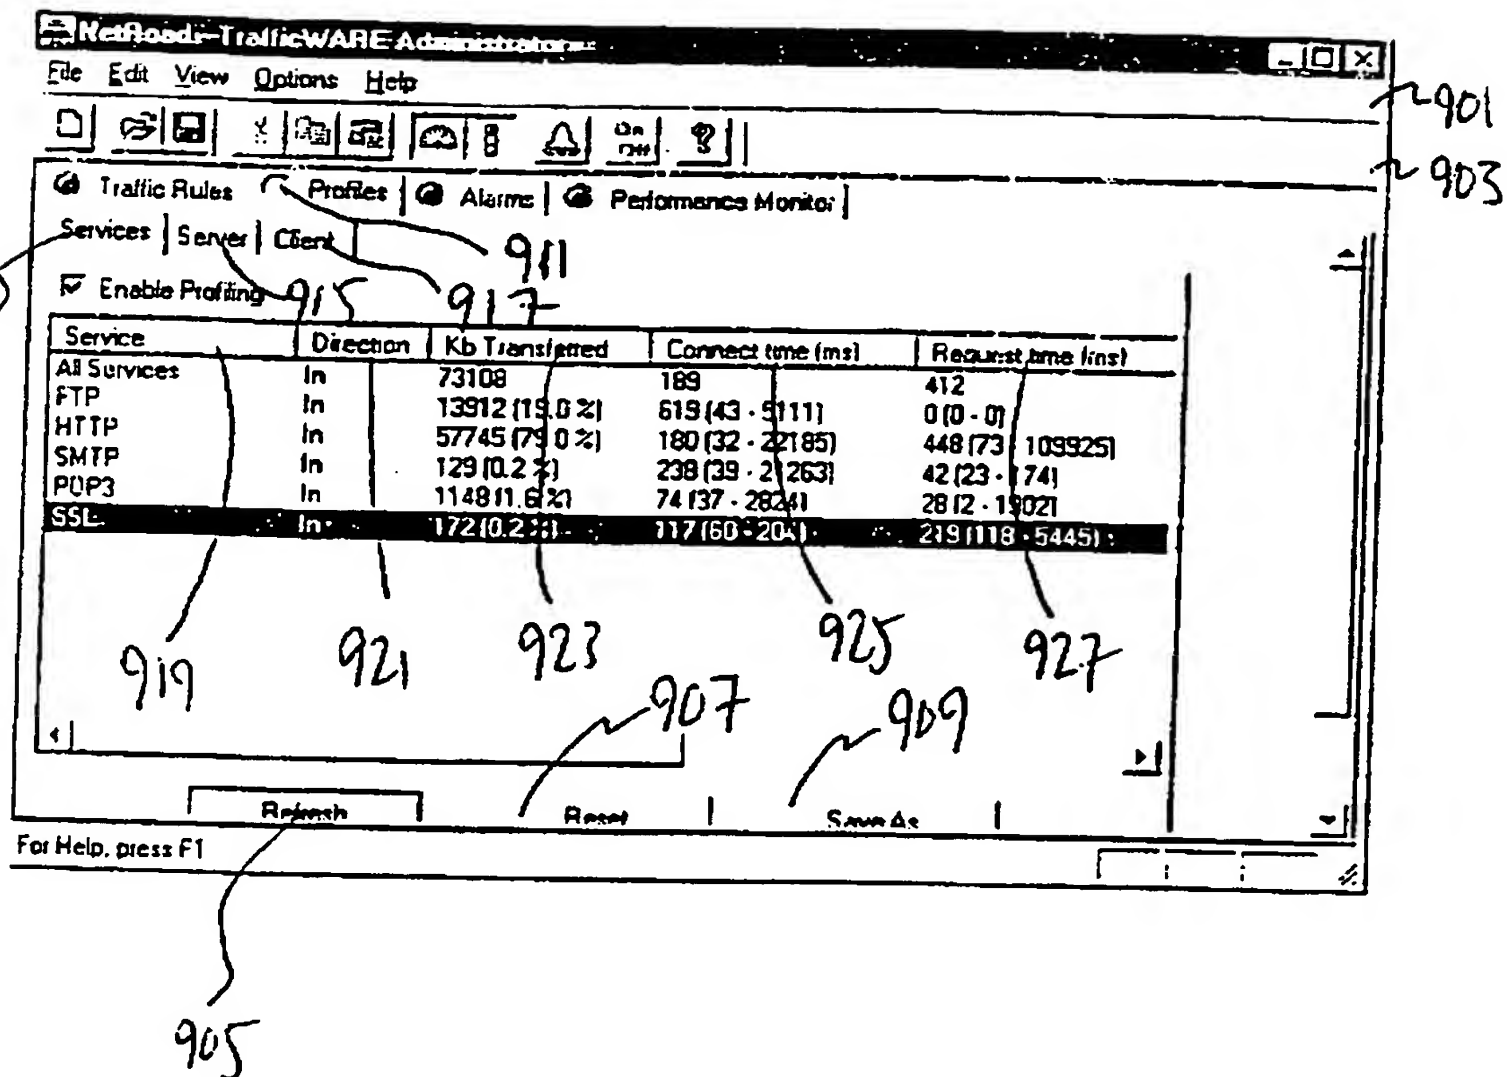 NetRoads-TrafficWARE Administrator
File Edit View Options Help
901
On
Off
903
Traffic Rules Profiles Alarms Performance Monitor
Services Server Client
911
Enable Profiling 915 917
Service Direction Kb Transferred Connect time (ms) Request time (ms)
All Services In 73108 189 412
FTP In 13912 (19.0 %) 619 (43 - 5111) 0 (0 - 0)
HTTP In 57745 (79.0 %) 180 (32 - 22185) 448 (73 - 109925)
SMTP In 129 (0.2 %) 238 (39 - 21263) 42 (23 - 174)
POP3 In 1148 (1.6 %) 74 (37 - 2824) 28 (2 - 1902)
SSL In 172 (0.2 %) 117 (60 - 204) 219 (118 - 5445)
919 921 923 925 927
907 909
Refresh Reset Save As
For Help, press F1
905